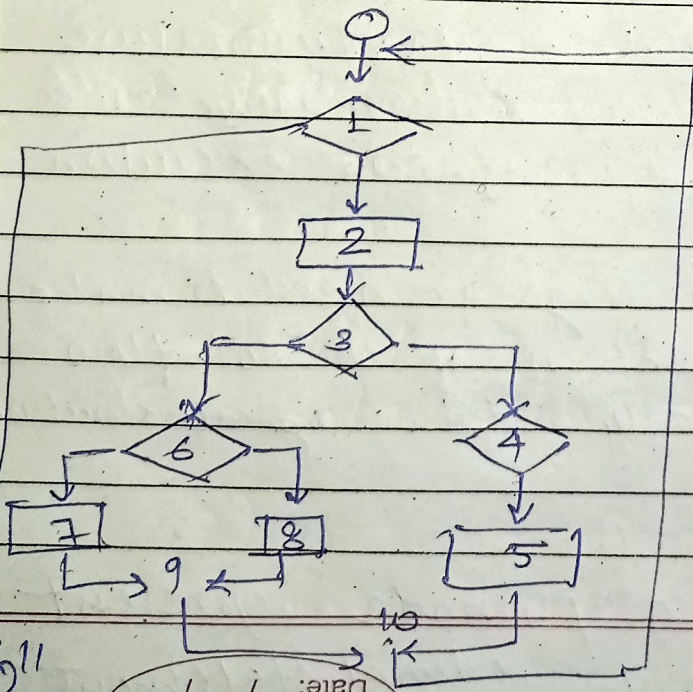 1
2
3
6
4
7
8
5
9
10
11
Date: